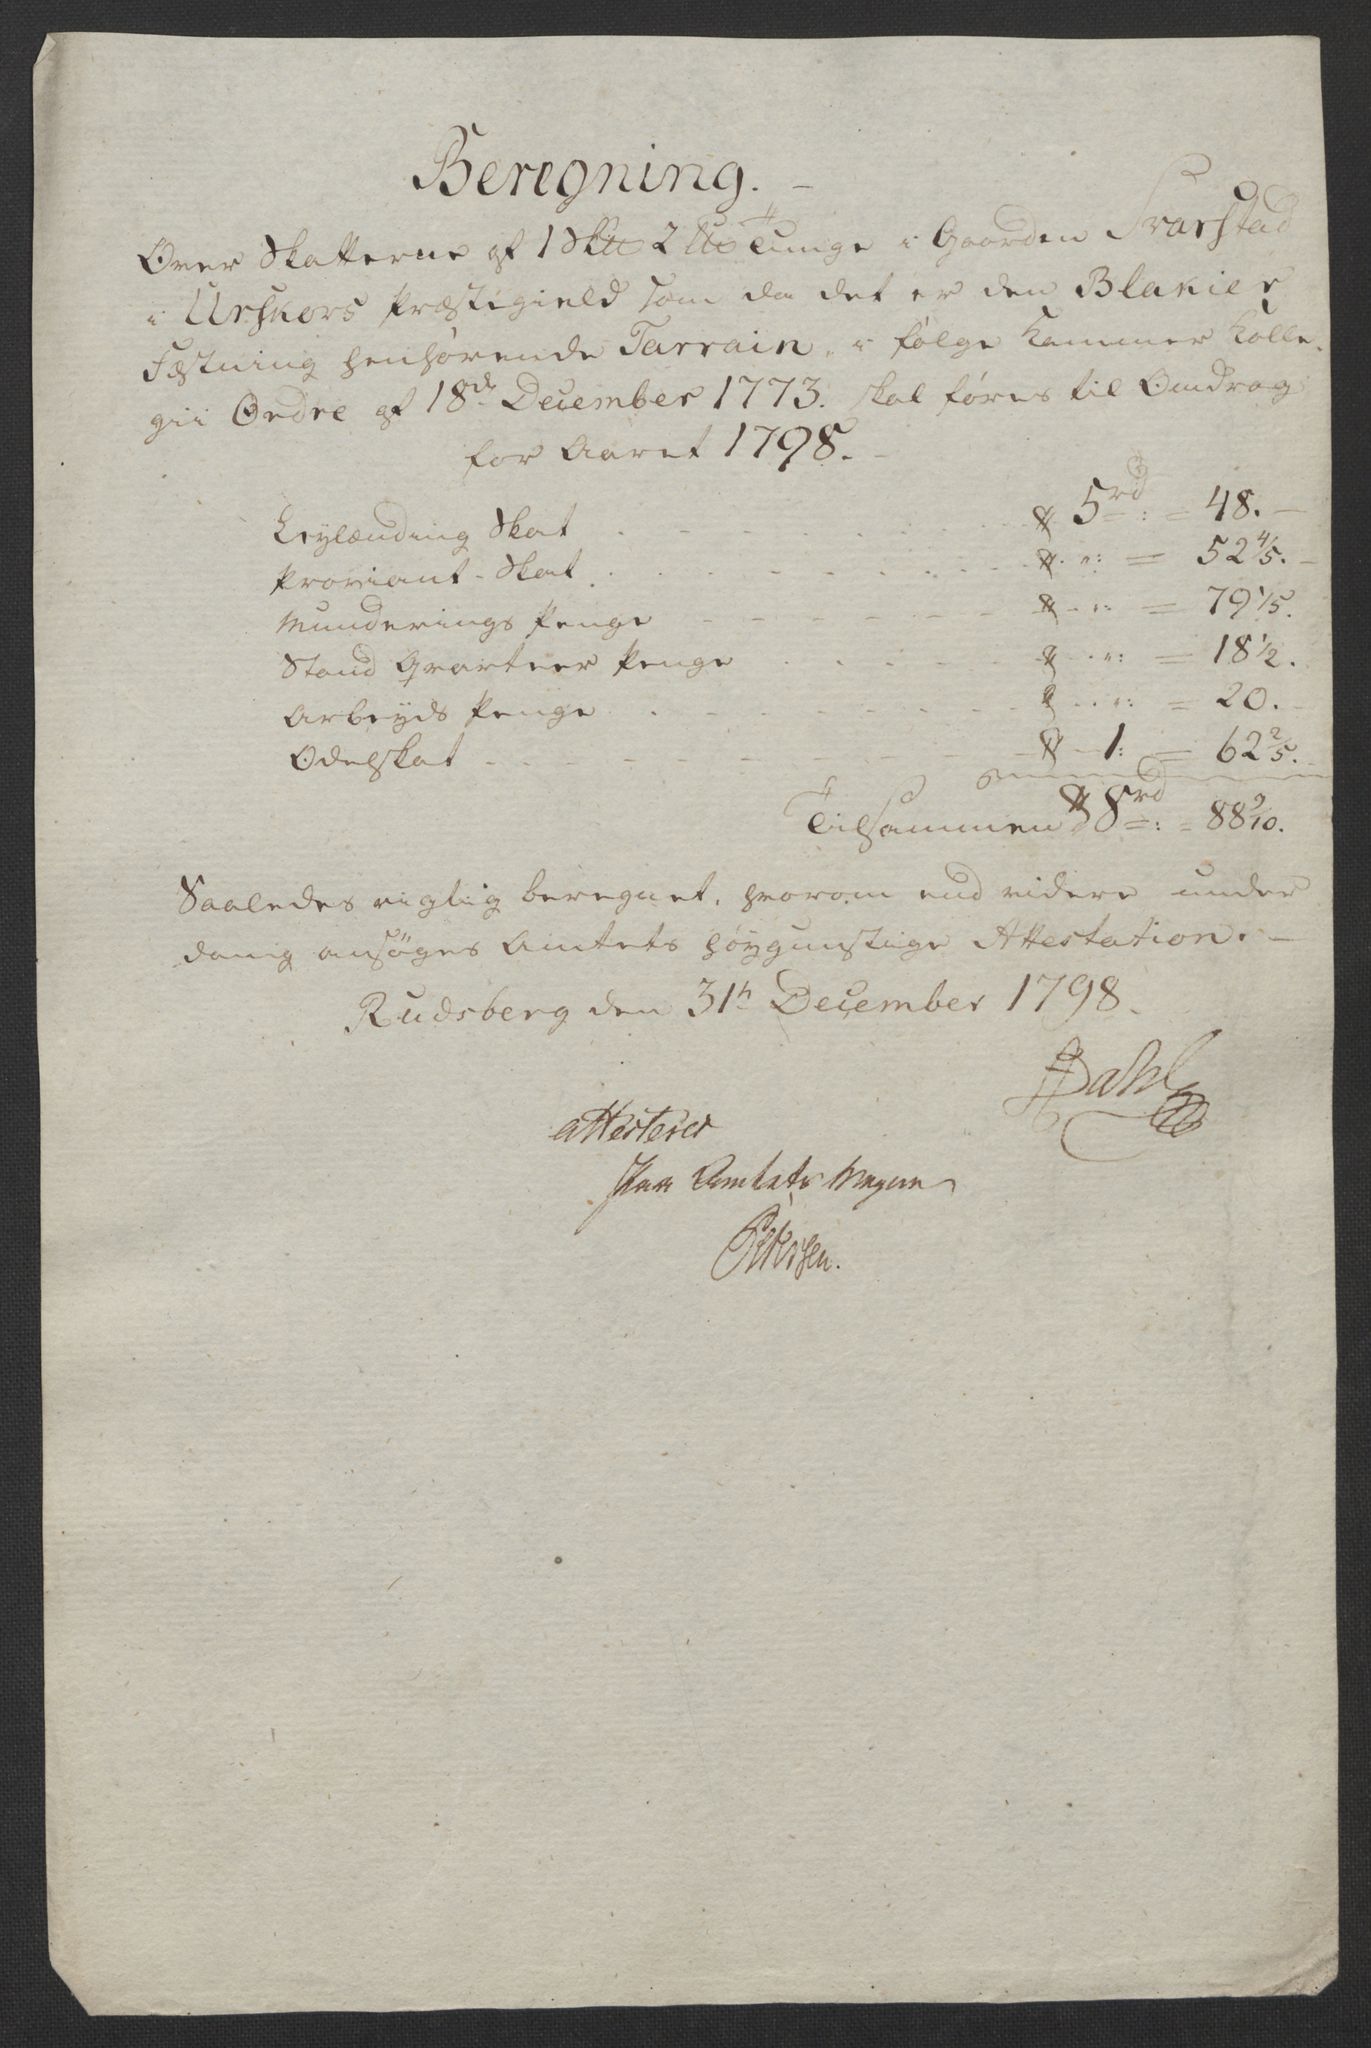 Beregning. -
Over Skatterne af 1 Sk℔ 2 ℔ Tunge i Gaarden Svarstad
i Urskovs Præstegield som da det er den Blakier
Fæstning henhørende Tarrain, i følge Kammer Colle-
gii Ordre af 18de December 1773. skal føres til Omdrag
for Aaret 1798. -
Leylænding Skat . - - - - 5 rd = 48. -
Proviant-Skat . . - - - - " = 52 4/5. -
Munderings Penge - - - - " = 79 1/5.
Stand Qvarteer Penge . . - - " = 18 1/2.
Arbeyds Penge . - - - - " = 20. -
Odelskat - - - - - 1: = 62 2/5.
Tilsammen 8 rd = 88 9/10.
Saaledes rigtig beregnet, hvorom end videre under
danig ansøges Amtets høygunstige Attestation. -
Rudsberg den 31te December 1798.
Dahl
attesteres
Paa Amtets Wegne
Petersen.